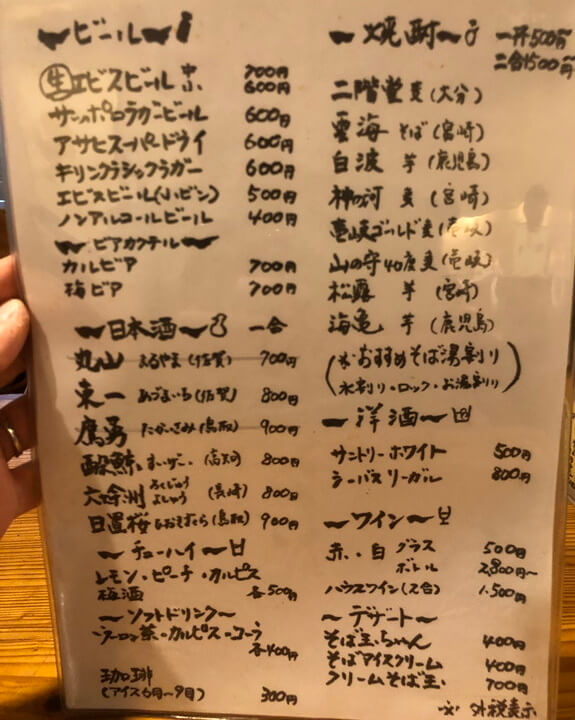 ビール
生エビスビール 中 700円
小 600円
サッポロラガービール 600円
アサヒスーパードライ 600円
キリンクラシックラガー 600円
エビスビール(小ビン) 500円
ノンアルコールビール 400円
ビアカクテル
カルピア 700円
梅ビア 700円
日本酒 一合
丸山 まるやま(佐賀) 700円
東一 あづまいち(佐賀) 800円
鷹勇 たかいさみ(鳥取) 900円
酔鯨 すいげい (高知) 800円
六十餘洲 ろくじゅうよしゅう (長崎) 800円
日置桜 ひおきざくら(鳥取) 900円
チューハイ
レモン・ピーチ・カルピス
梅酒 各500円
ソフトドリンク
ウーロン茶・カルピス・コーラ
各400円
珈琲
(アイス6月〜9月) 300円
焼酎 一杯500円
二合1500円
二階堂 麦(大分)
雲海 そば(宮崎)
白波 芋(鹿児島)
神の河 麦(宮崎)
壱岐ゴールド 麦(壱岐)
山の守40度 麦(壱岐)
松露 芋(宮崎)
海亀 芋(鹿児島)
(おすすめそば湯割り
水割り・ロック・お湯割り)
洋酒
サントリーホワイト 500円
シーバスリーガル 800円
ワイン
赤・白 グラス 500円
ボトル 2,800円〜
ハウスワイン(2合) 1,500円
デザート
そば玉ちゃん 400円
そばアイスクリーム 400円
クリームそば玉 700円
※外税表示